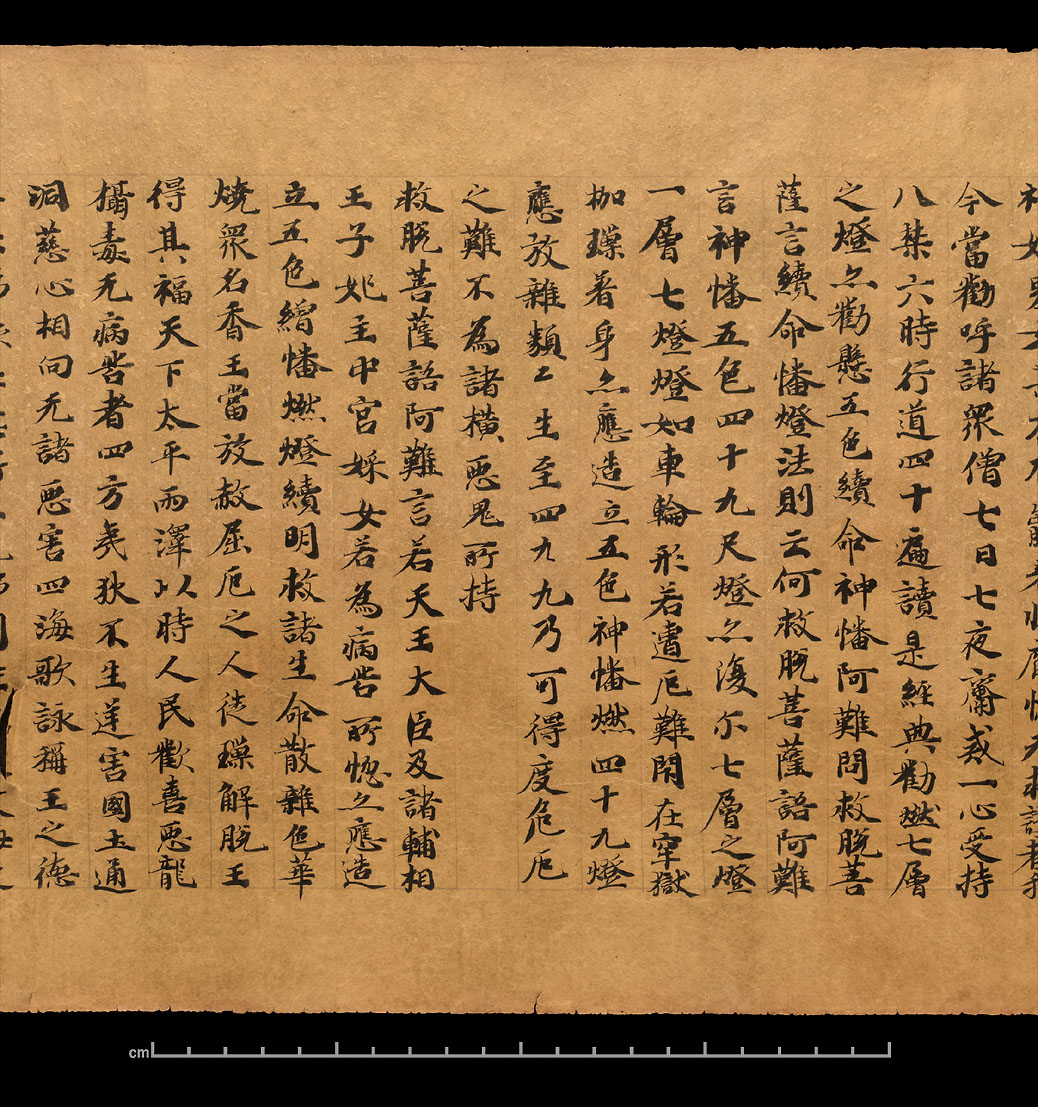 今當勸呼諸眾僧七日七夜齋戒一心受持
八禁六時行道四十遍讀是經典勸燃七層
之燈亦勸懸五色續命神幡阿難問救脫菩
薩言續命幡燈法則云何救脫菩薩語阿難
言神幡五色四十九尺燈亦復尒七層之燈
一層七燈燈如車輪形若遭厄難閇在牢獄
枷璅著身亦應造立五色神幡燃四十九燈
應放雜類〻生至四九九乃可得度危厄
之難不為諸橫惡鬼所持
救脫菩薩語阿難言若天王大臣及諸輔相
王子妃主中宮婇女若為病苦所惚亦應造
立五色繒幡燃燈續明救諸生命散雜色華
燒眾名香王當放赦屈厄之人徒璅解脫王
得其福天下太平雨澤以時人民歡喜惡龍
攝毒无病苦者四方夷狄不生逆害國土通
洞慈心相向无諸惡害四海歌詠稱王之德
cm